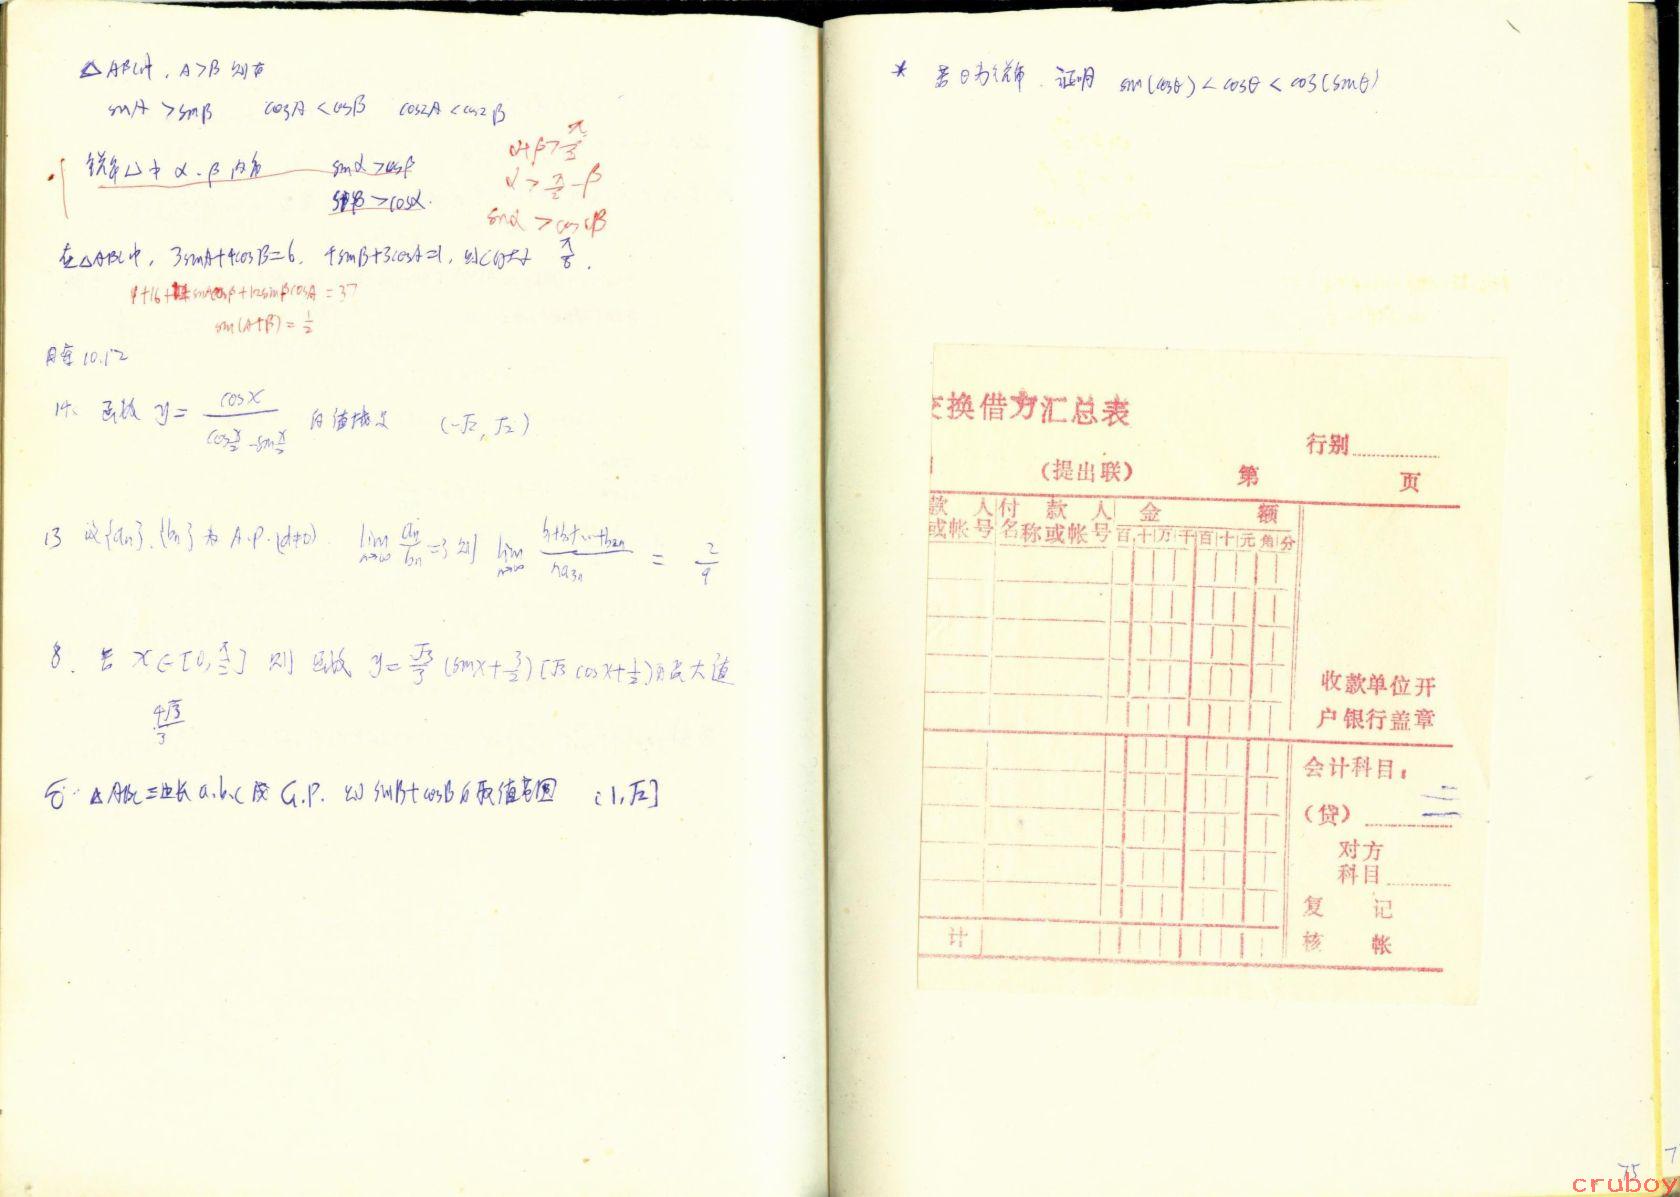 △ABC中, A>B 则有
sinA >sinB cosA <cosB cos2A <cos2B
锐角△中 α、β 内角 sinα >cosβ
sinβ >cosα.
α+β>π/2
α > π/2 -β
sinα > cosβ
在△ABC中, 3sinA+4cosB=6, 4sinB+3cosA=1, 则C的大小 π/6.
9+16+24sinAcosB+12sinBcosA =37
sin(A+B)=1/2
月考10.12
14、函数 y= cosx/(cos x/2 -sin x/2) 的值域是 (-√2, √2)
13 设{an}、{bn}为A.P.(d≠0). lim n→∞ an/bn =3 则 lim n→∞ (b1+b2+…+b2n)/na3n = 2/9
8. 若 x∈[0, π/2] 则 函数 y= √3/3 (sinx+3/2)(√3 cosx+1/2)的最大值
4√3/3
△ABC三边长a.b.c成G.P. 则 sinB+cosB的取值范围 (1,√2]
* 若θ为锐角. 证明 sin(cosθ) < cosθ < cos(sinθ)
交换借方汇总表
行别
(提出联) 第 页
款 人 付 款 人 金 额
或帐号 名称或帐号 百十万千百十元角分
收款单位开
户银行盖章
会计科目:
(贷)
对方
科目
复 记
计 核 帐
75
cruboy